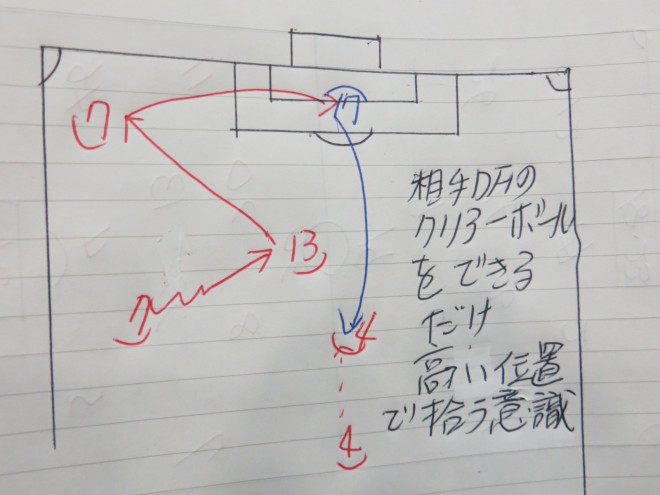 7
7
13
7
4
4
相手DFの
クリアーボール
をできる
だけ
高い位置
で拾う意識